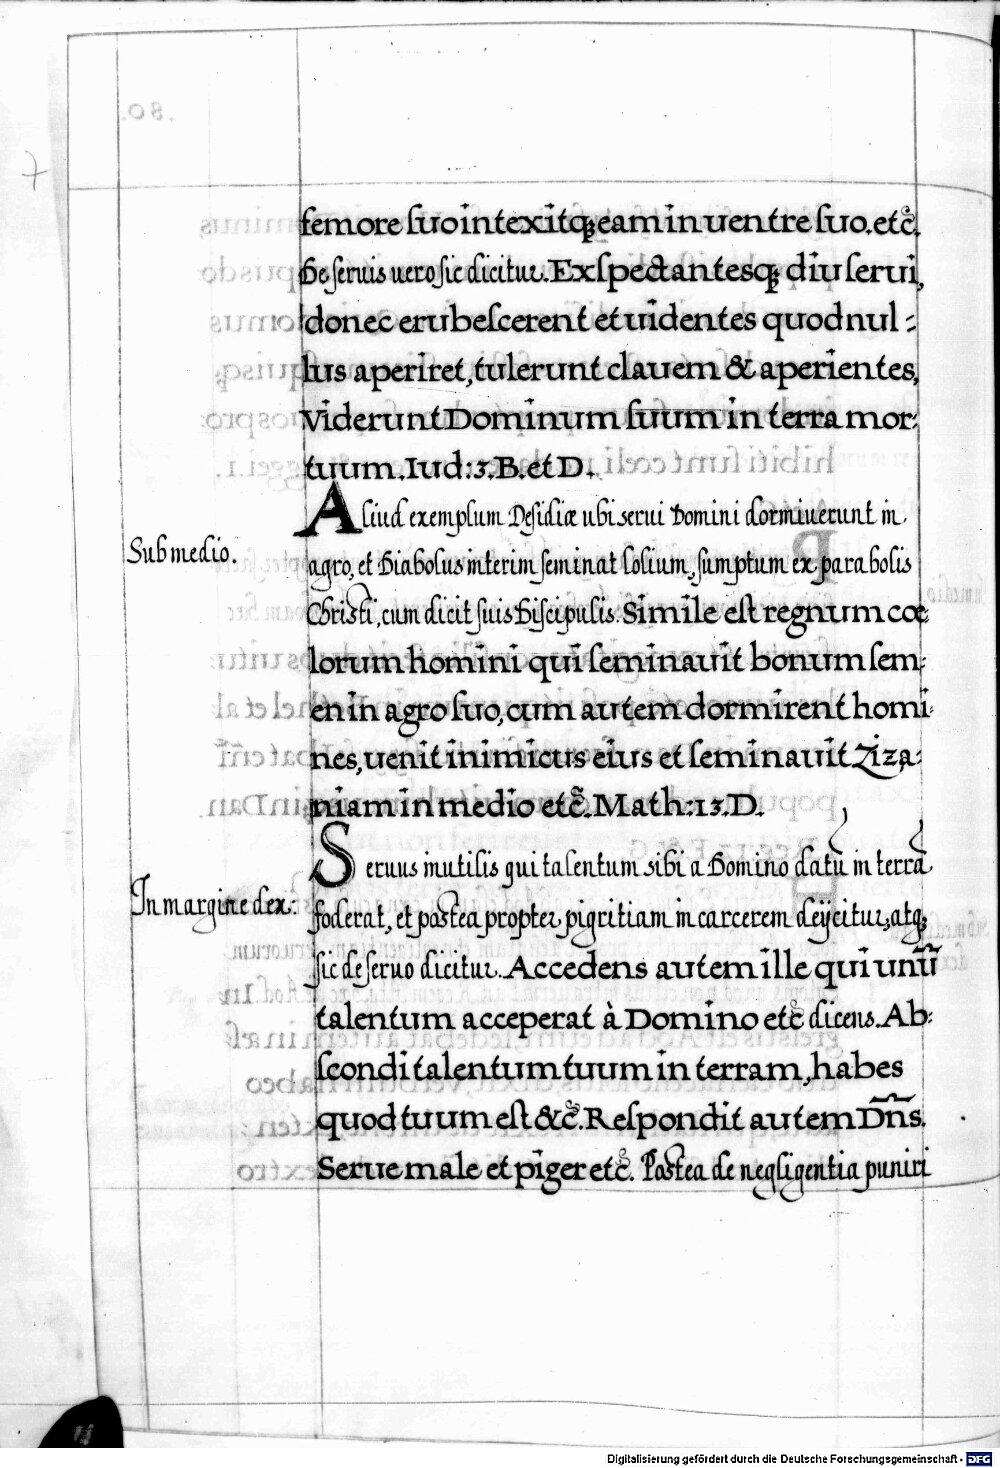 femore suo intexitq; eam in uentre suo. etc̃.
De seruis uero sic dicitur. Exspectantesq; diu serui,
donec erubescerent et uidentes quod nul-
lus aperiret, tulerunt clauem & aperientes,
Viderunt Dominum suum in terra mor:
tuum. Iud: 3. B. et D.
Aliud exemplum Desidiæ ubi serui Domini dormiuerunt in.
Sub medio.
agro, et Diabolus interim seminat lolium, sumptum ex parabolis
Christi, cum dicit suis Discipulis. Simile est regnum cœ
lorum homini qui seminauit bonum sem:
en in agro suo, cum autem dormirent homi
nes, uenit inimicus eius et seminauit Ziza:
niam in medio etc̃. Math: 13. D.
Seruus inutilis qui talentum sibi a Domino datū in terra
In margine dex:
foderat, et postea propter pigritiam in carcerem deijcitur, atq;
sic de seruo dicitur. Accedens autem ille qui unū
talentum acceperat à Domino etc̃ dicens. Ab:
scondi talentum tuum in terram, habes
quod tuum est &c̃. Respondit autem Dñs.
Serue male et piger etc̃. Postea de negligentia puniri
Digitalisierung gefördert durch die Deutsche Forschungsgemeinschaft - DFG